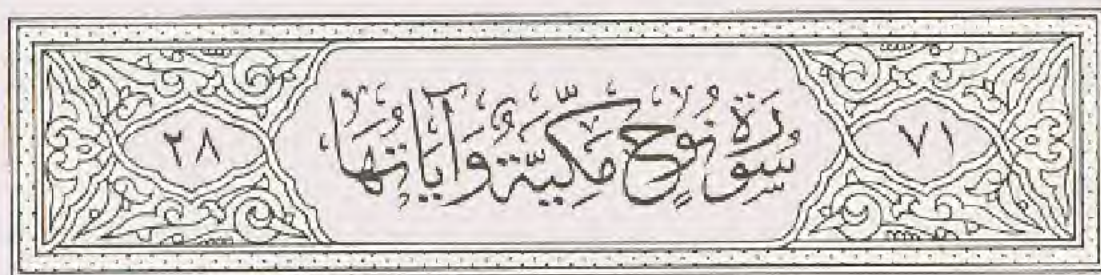 ٧١ سُورَةُ نُوحٍ مَكِّيَّةٌ وَآيَاتُهَا ٢٨